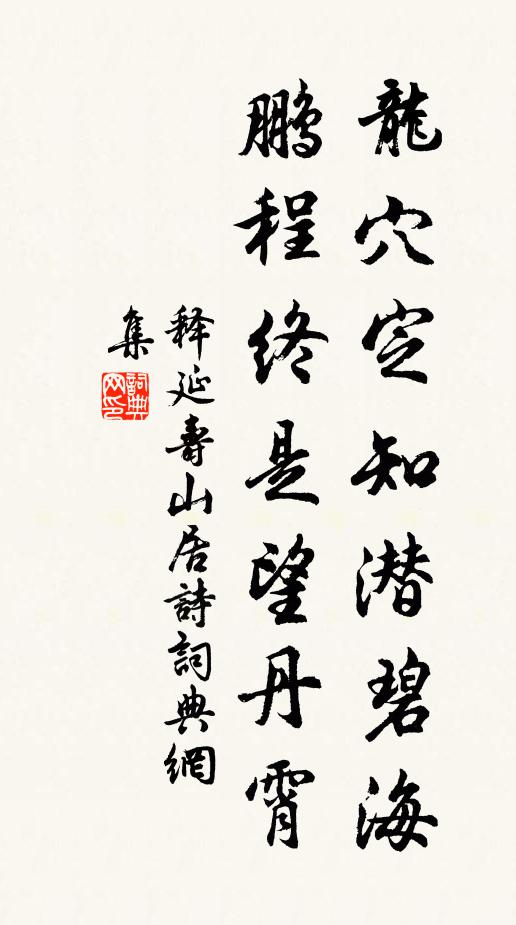 龍穴定知潜碧海
鵬程終是望丹霄
释延壽山居詩詞典網
集
詞典网印